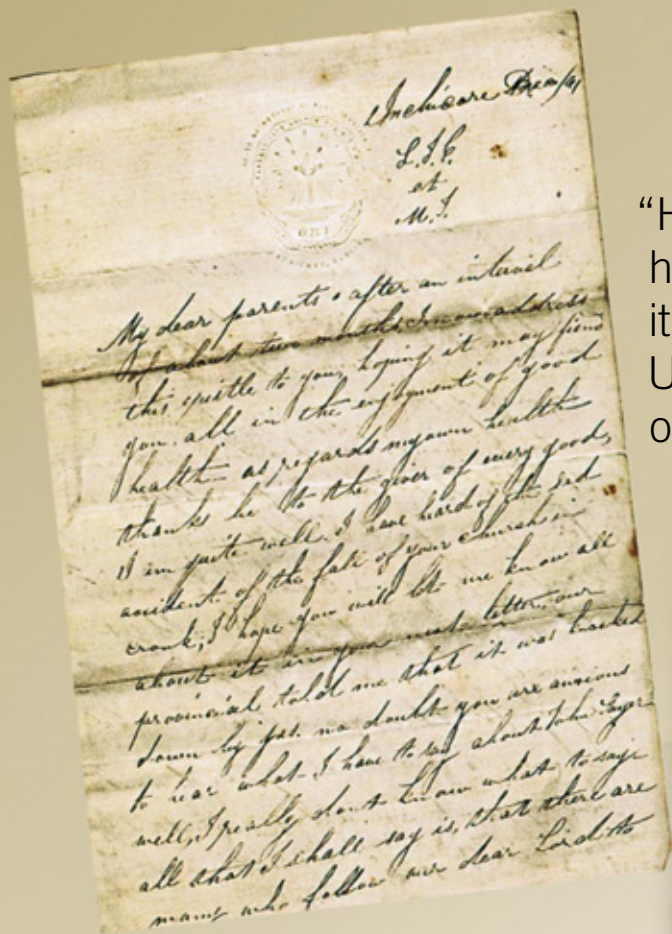 Inchicore
L.J.C.
et
M.J.
OMI
My dear parents, after an interval
of about two months I now address
this epistle to you, hoping it may fiend
you all in the enjoyment of good
health as regards my own health
thanks be to the giver of every good,
I am quite well. I have hard of the sad
accident of the fall of your church in
crook, I hope you will let me know all
about it in your next letter, our
provincial told me that it was
down by gas. no doubt you are anxious
to hear what I have to say about John
well, I really dont know what to say
all that I shall say is, that there are
many who follow our dear Lord to
“H
h
it
U
o